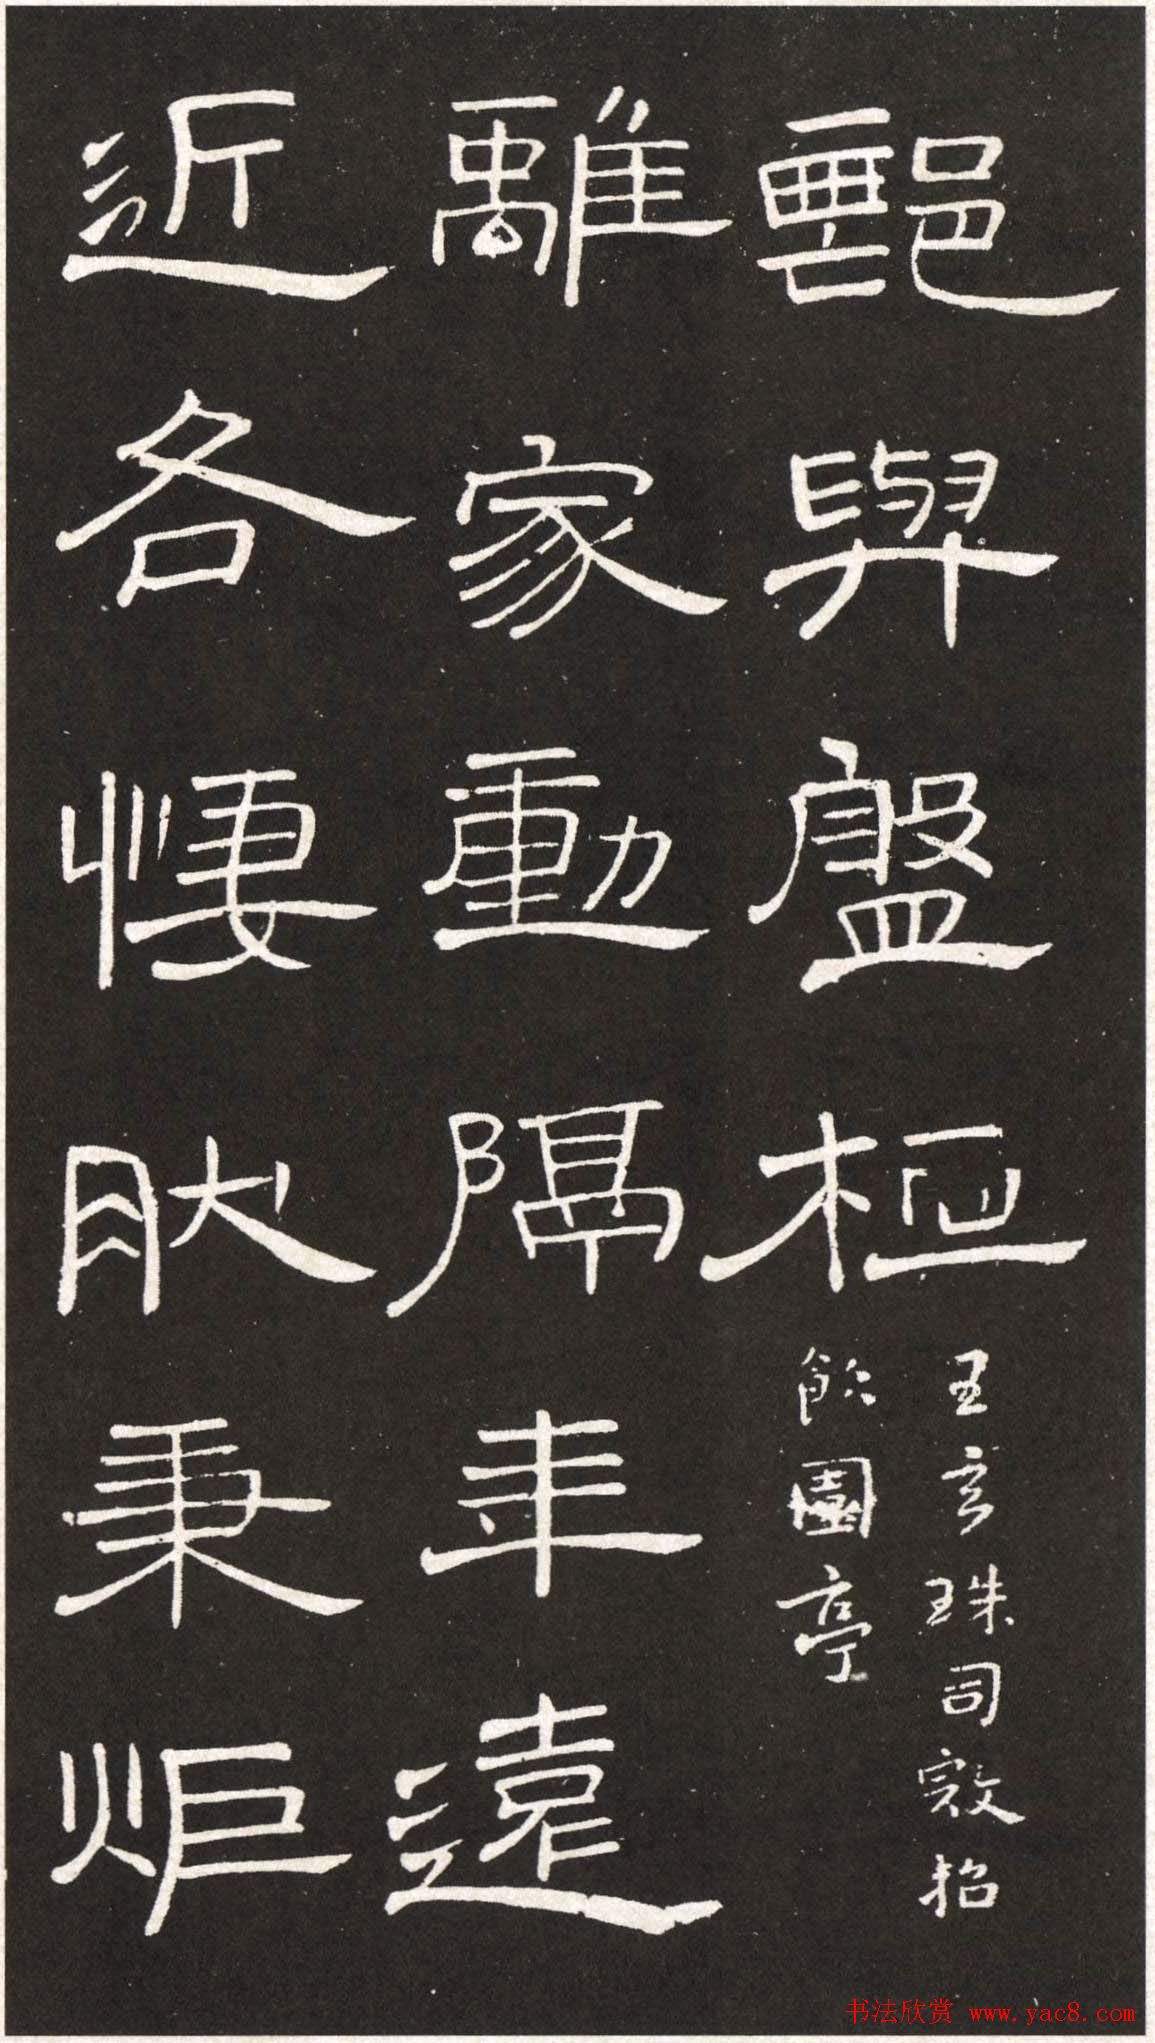 鄦與盤桓
王玄珠司寇招
飲園亭
離家動隔年遠
近各悽肰秉炬
书法欣赏 www.yac8.com